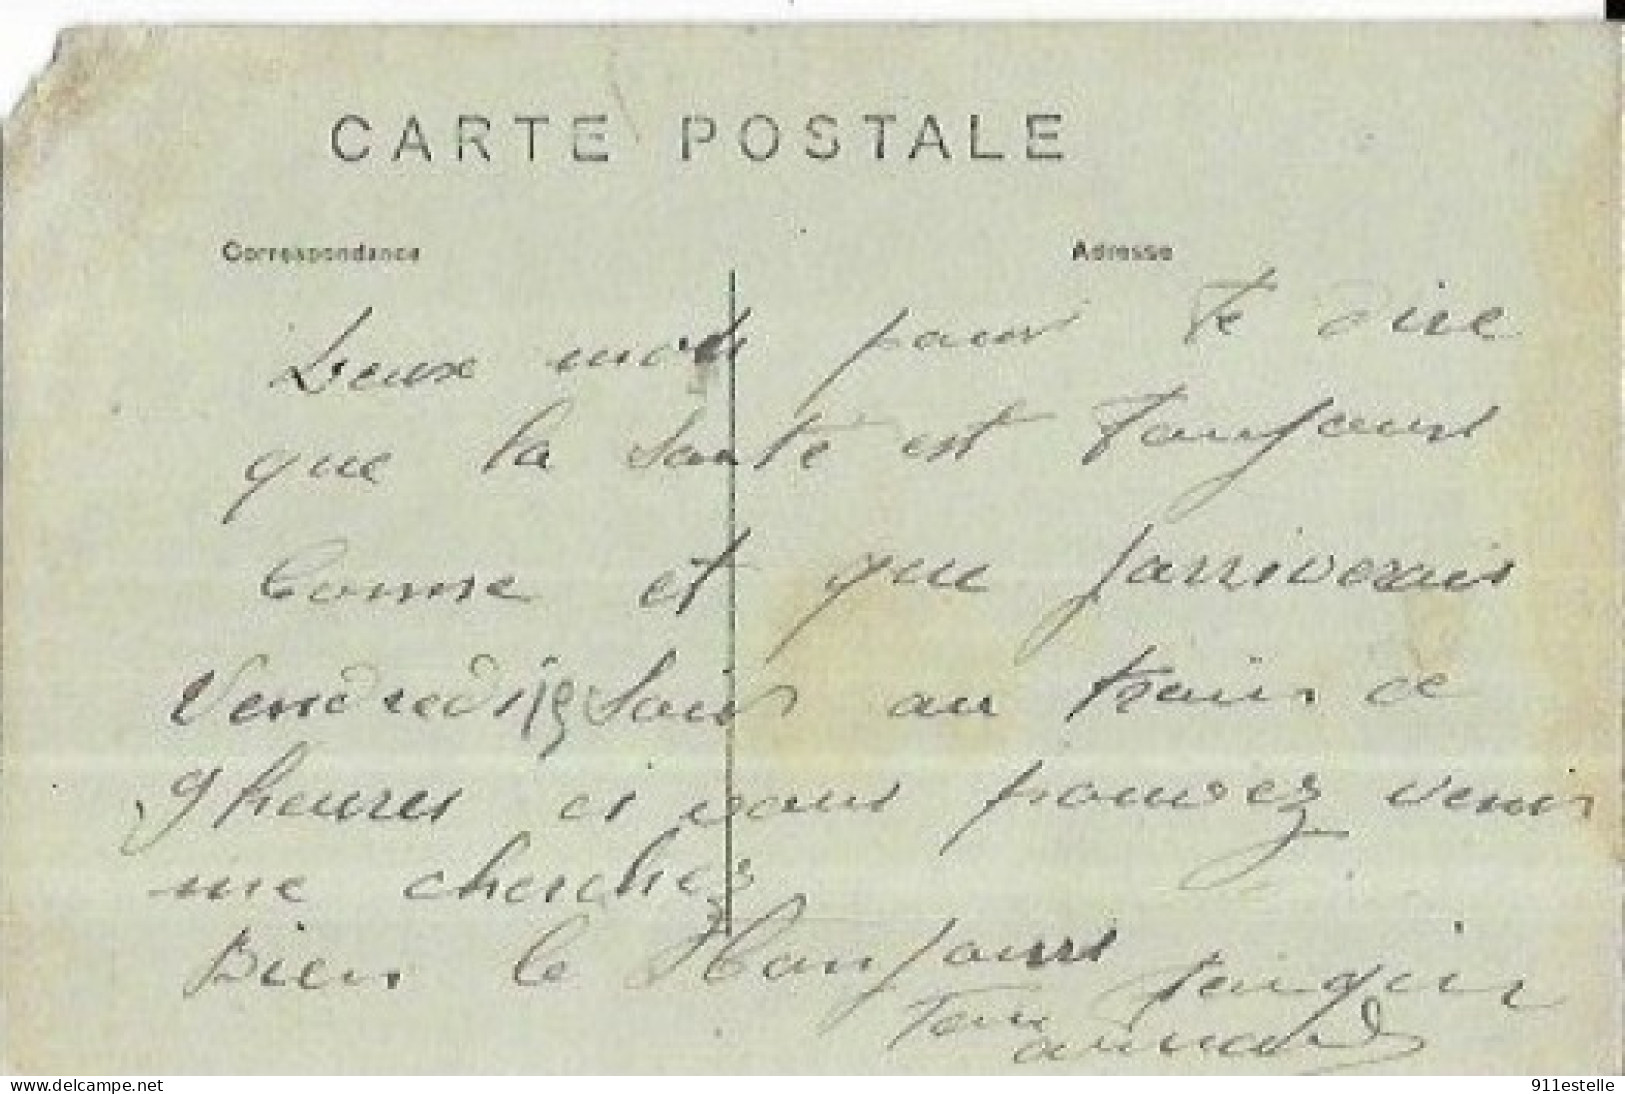 CARTE POSTALE
Correspondance Adresse
Deux mots pour te dire
que la santé est toujours
bonne et que j'arriverais
vendredi 19 soir au train de
9 heures et vous pouvez venir
me cherchez
Bien le bonjours
Ton
armand
delcampe.net
911estelle